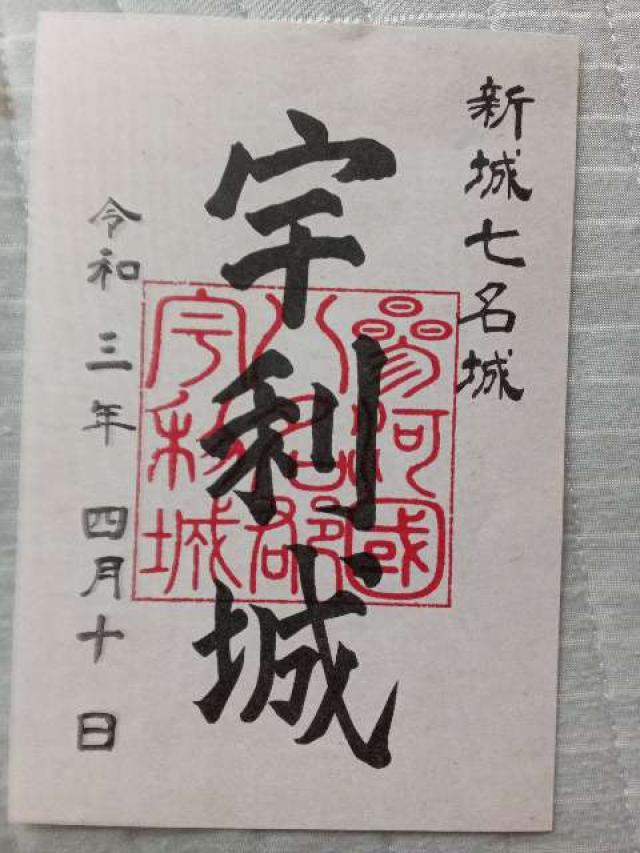 新城七名城
宇利城
參河國
八名郡
宇利城
令和三年 四月十日